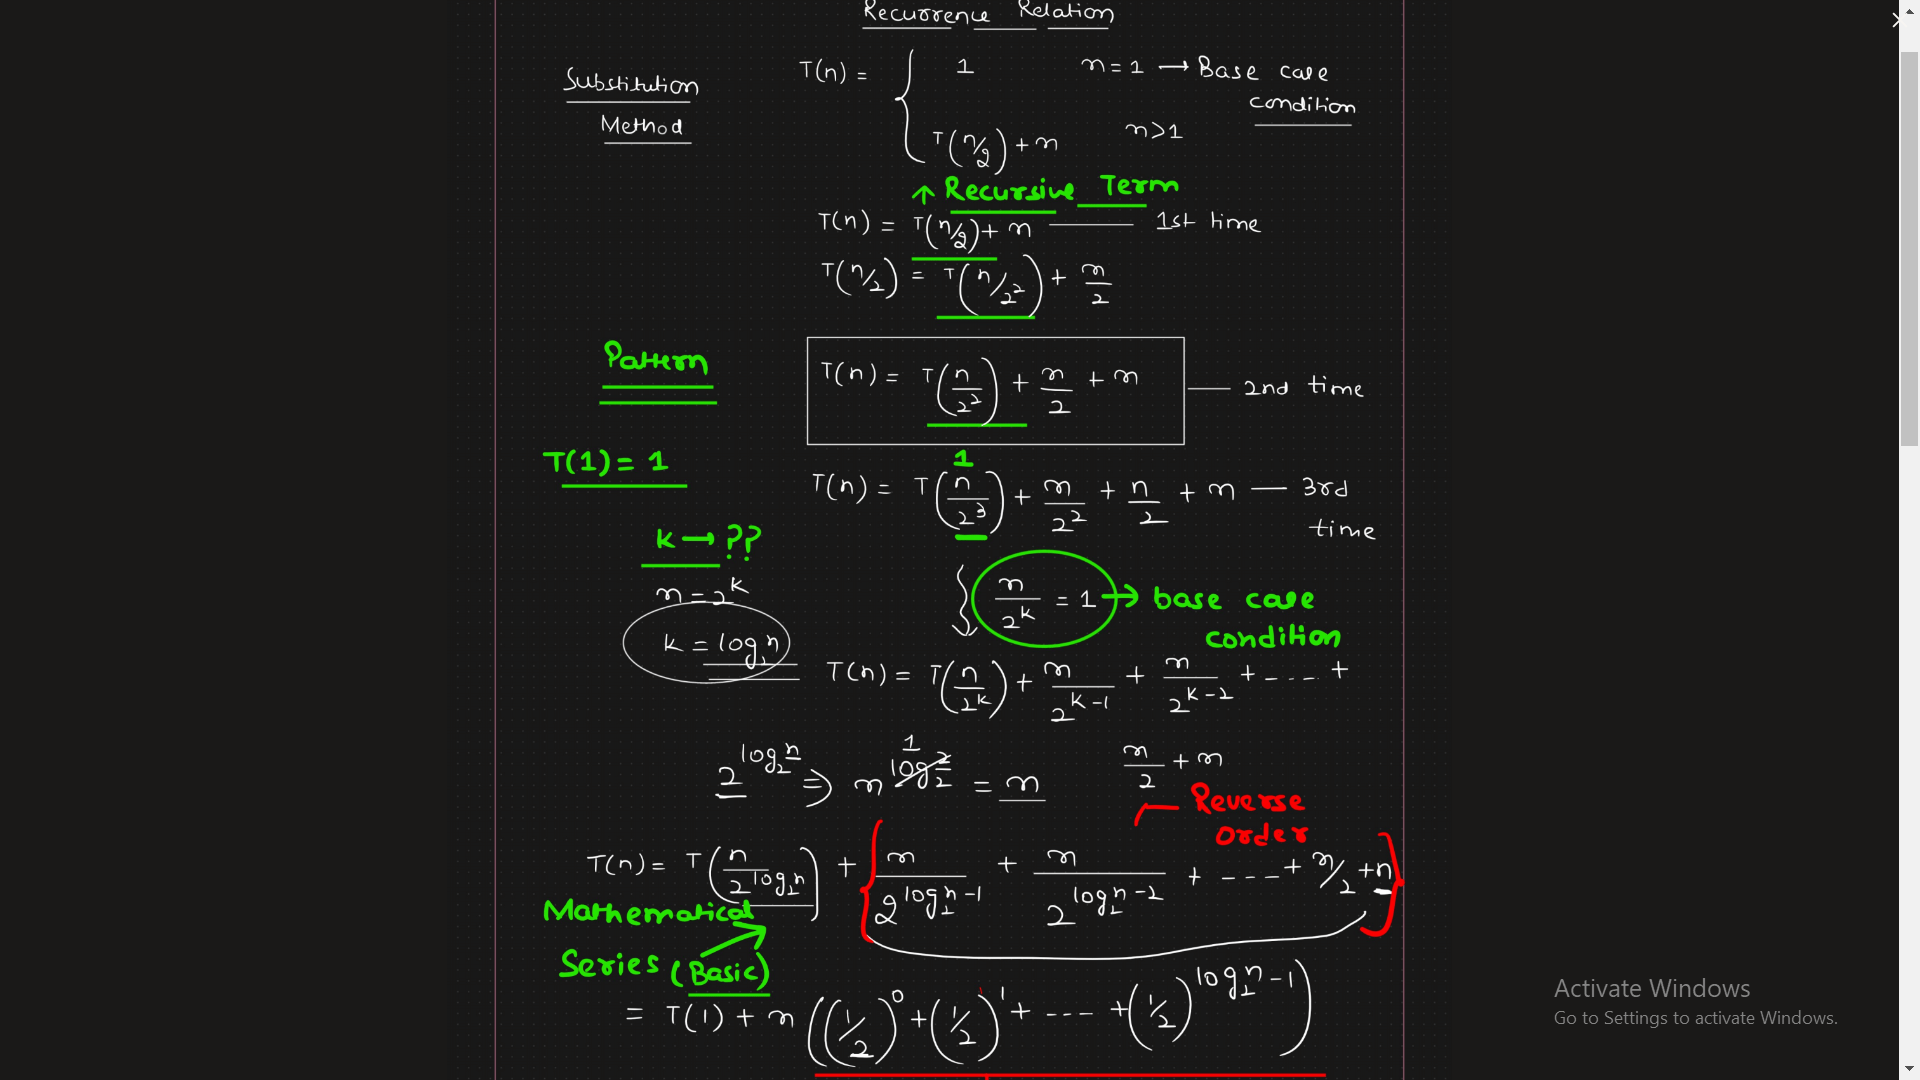 Recurrence Relation
Substitution Method
T(n) = { 1 n = 1 → Base case condition
T(n/2) + n n > 1
↑ Recursive Term
T(n) = T(n/2) + n —— 1st time
T(n/2) = T(n/2²) + n/2
Pattern
T(n) = T(n/2²) + n/2 + n — 2nd time
T(1) = 1
1
T(n) = T(n/2³) + n/2² + n/2 + n — 3rd time
k → ??
n = 2^k
n/2^k = 1 → base case condition
k = log₂n
T(n) = T(n/2^k) + n/2^(k-1) + n/2^(k-2) + - - - - + n/2 + n
2^(log₂n) ⇒ n^(log₂2) 1 = n
Reverse order
T(n) = T(n/2^(log₂n)) + { n/2^(log₂n - 1) + n/2^(log₂n - 2) + - - - - + n/2 + n }
Mathematical Series (Basic)
= T(1) + n((1/2)^0 + (1/2)^1 + - - - - + (1/2)^(log₂n - 1))
Activate Windows
Go to Settings to activate Windows.